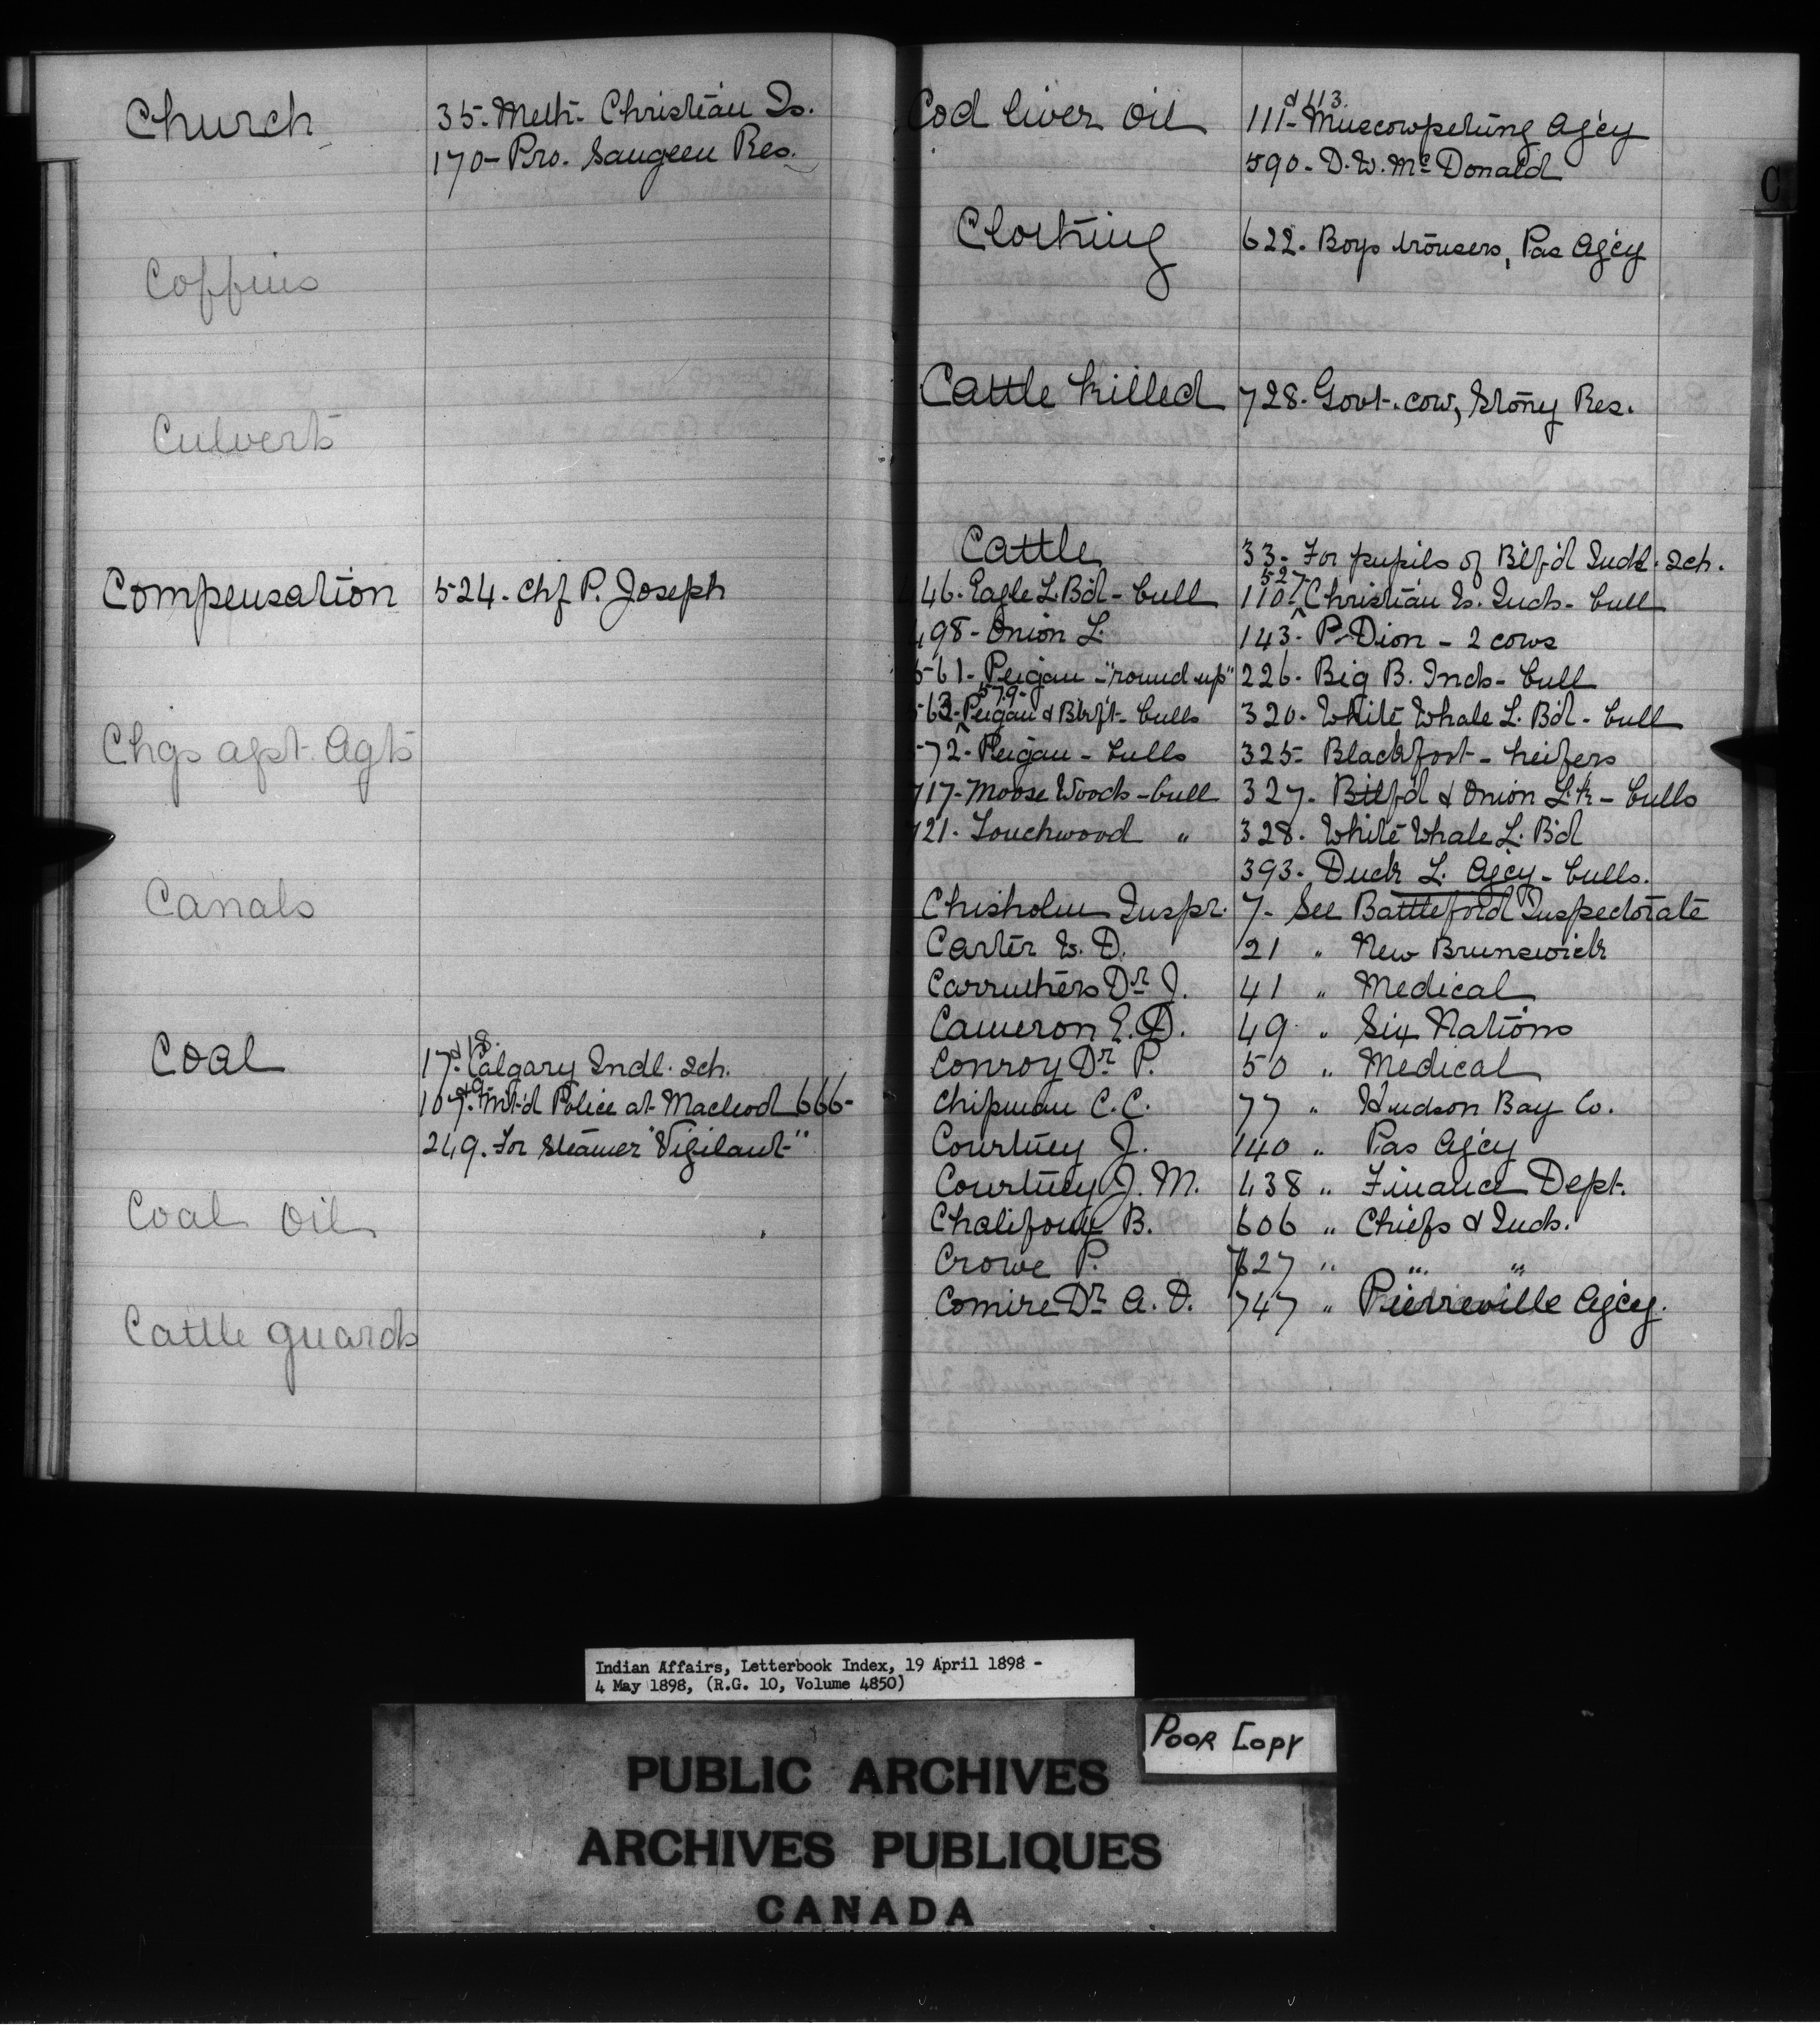 Church 35. Meth. Christian Is.
170 - Pro. Saugeen Res.
Coffins
Culverts
Compensation 524. Chf P. Joseph
Chgs agst. Agts
Canals
Coal 17 & 18. Calgary Indl. Sch.
Mt'd Police at Macleod 666-
249. For steamer "Vigilant"
Coal Oil
Cattle guards
C
Cod liver Oil 111 & 113. Muscowpetung Agcy
590. D. W. McDonald
Clothing 622. Boys trousers, Pas Agcy
Cattle killed 728. Govt. cow, Stony Res.
Cattle 33. For pupils of Btlf'd Indl. Sch.
46. Eagle L. B'd - bull 110. 527 Christian Is. Inds - bull
498 - Onion L. 143. P. Dion - 2 cows
561 - Peigan - "round up" 226. Big B. Inds - bull
563. 579 - Peigan & Blkf't - bulls 320. White Whale L. B'd - bull
572. Peigan - bulls 325 Blackfoot - heifers
717. Moose Woods - bull 327. Btlf'd & Onion Lk - bulls
721. Touchwood " 328. White Whale L. B'd
393. Duck L. Agcy - bulls.
Chisholm Inspr. 7. See Battleford Inspectorate
Carter W. D. 21 " New Brunswick
Carruthers Dr J. 41 " Medical
Cameron E. D. 49 " Six Nations
Conroy Dr P. 50 " Medical
Chipman C. C. 77 " Hudson Bay Co.
Courtney J. 140 " Pas Agcy
Courtney J. M. 438 " Finance Dept.
Chalifoux B. 606 " Chiefs & Inds.
Crowe P. 627 " " "
Comire Dr A. O. 747 " Pierreville Agcy.
Indian Affairs, Letterbook Index, 19 April 1898 -
4 May 1898, (R.G. 10, Volume 4850)
POOR COPY
PUBLIC ARCHIVES
ARCHIVES PUBLIQUES
CANADA